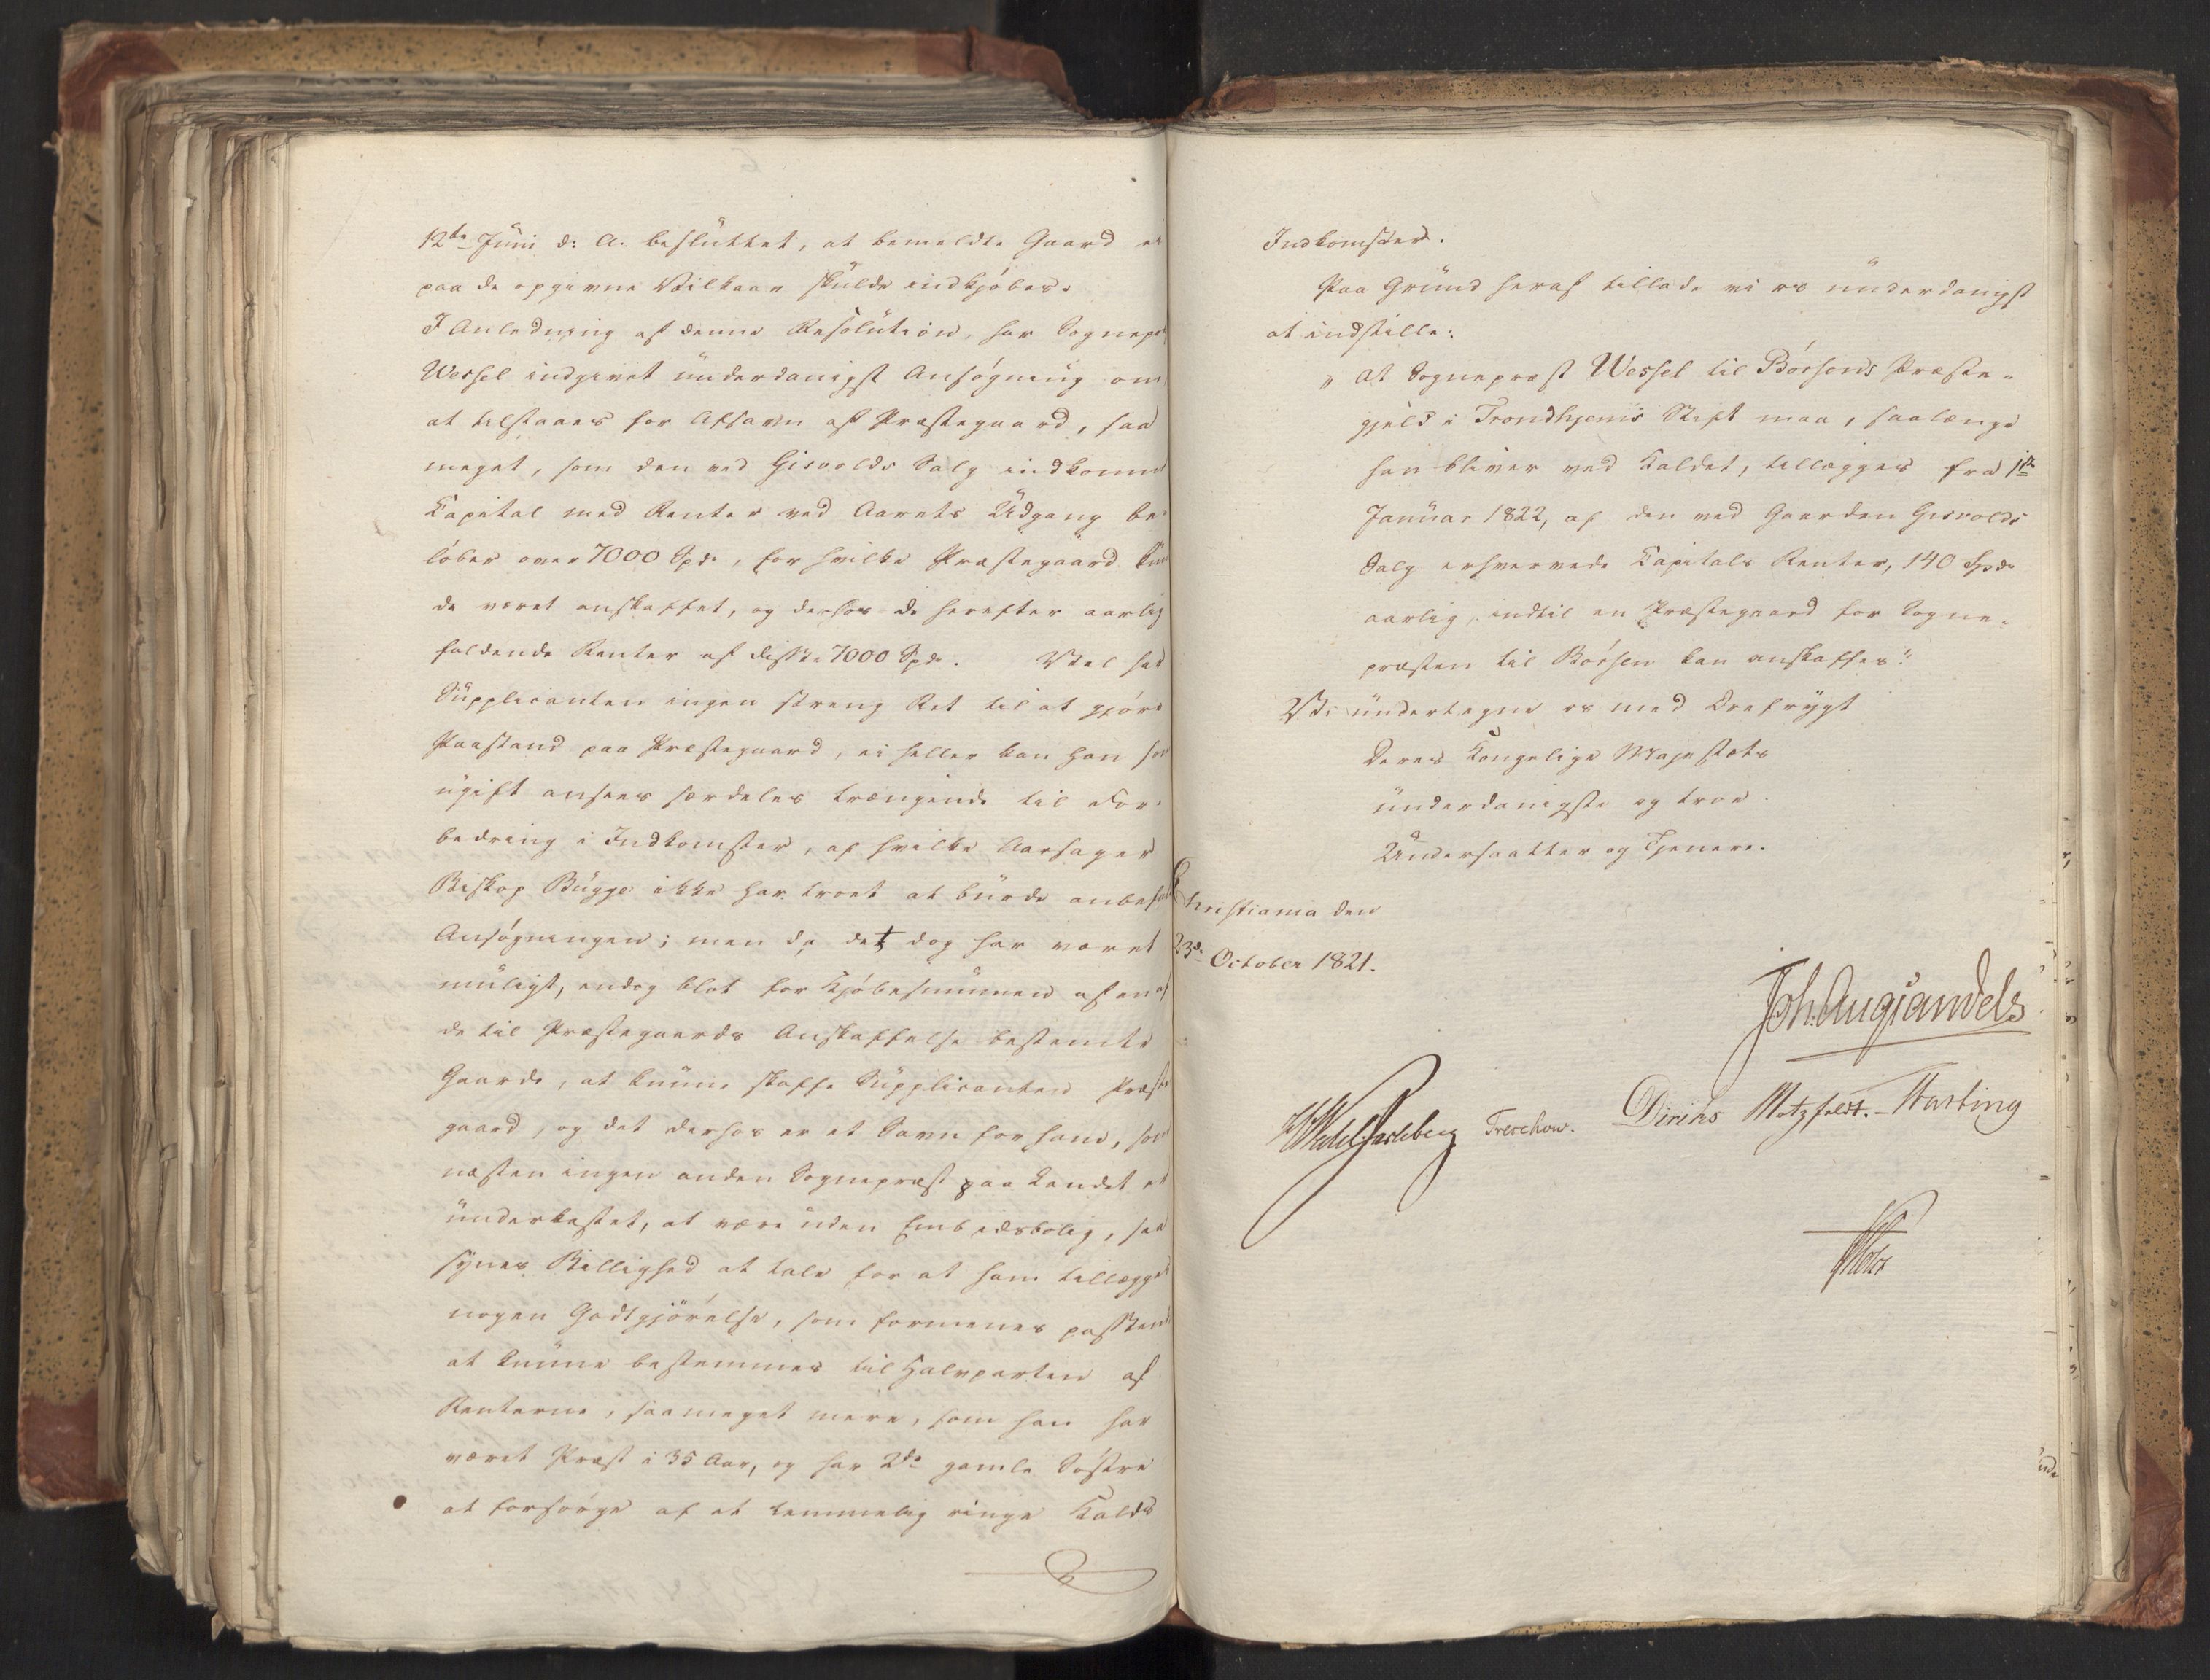 12te Juni d: A. besluttet, at bemeldte Gaard ei
paa de opgivne Vilkaar skulde indkjöbes.
I Anledning af denne Resolution, har Sognepr
Wessel indgivet underdanigst Ansögning om
at tilstaaes for Afsavn af Præstegaard, saa
meget, som den ved Gisvolds Salg indkomne
Capital med Renter ved Aarets Udgang be-
löber over 7000 Spd., for hvilke Præstegaard kun
de været anskaffet, og derhos de herefter aarlig
faldende Renter af disse 7000 Spd. Vel har
Supplicanten ingen streng Ret til at gjöre
Paastand paa Præstegaard, ei heller kan han som
ugift ansees særdeles trængende til For-
bedring i Indkomster, af hvilke Aarsager
Biskop Bugge ikke har troet at burde anbefale
Ansögningen; men da det dog har været
muligt, endog blot for Kjöbesummen af en af
de til Præstegaards Anskaffelse bestemte
Gaarde, at kunne skaffe Supplicanten Præste
gaard, og det derhos er et Savn for ham, som
næsten ingen anden Sognepræst paa Landet er
underkastet, at være uden Embedsbolig, saa
synes Billighed at tale for at ham tillægges
nogen Godtgjörelse, som formenes passende
at kunne bestemmes til Halvparten af
Renterne, saameget mere, som han har
været Præst i 35 Aar, og har 2de gamle Söstre
at forsörge af et temmelig ringe Kalds
Indkomster.
Paa Grund heraf tillade vi os underdanigst
at indstille:
"At Sognepræst Wessel til Börsens Præste-
gjeld i Trondhjems Stift maa, saalænge
han bliver ved Kaldet, tillægges fra 1ste
Januar 1822, af den ved Gaarden Gisvolds
Salg erhvervede Capitals Renter, 140 Spd.
aarlig, indtil en Præstegaard for Sogne-
præsten til Börsen kan anskaffes."
Vi undertegne os med Ærefrygt
Deres Kongelige Majestæts
underdanigste og troe
Undersaatter og Tjenere.
Christiania den
23de October 1821.
Joh. Aug. Sandels
HWedel Jarlsberg Treschow. Diriks Motzfeldt. Fasting
Holst